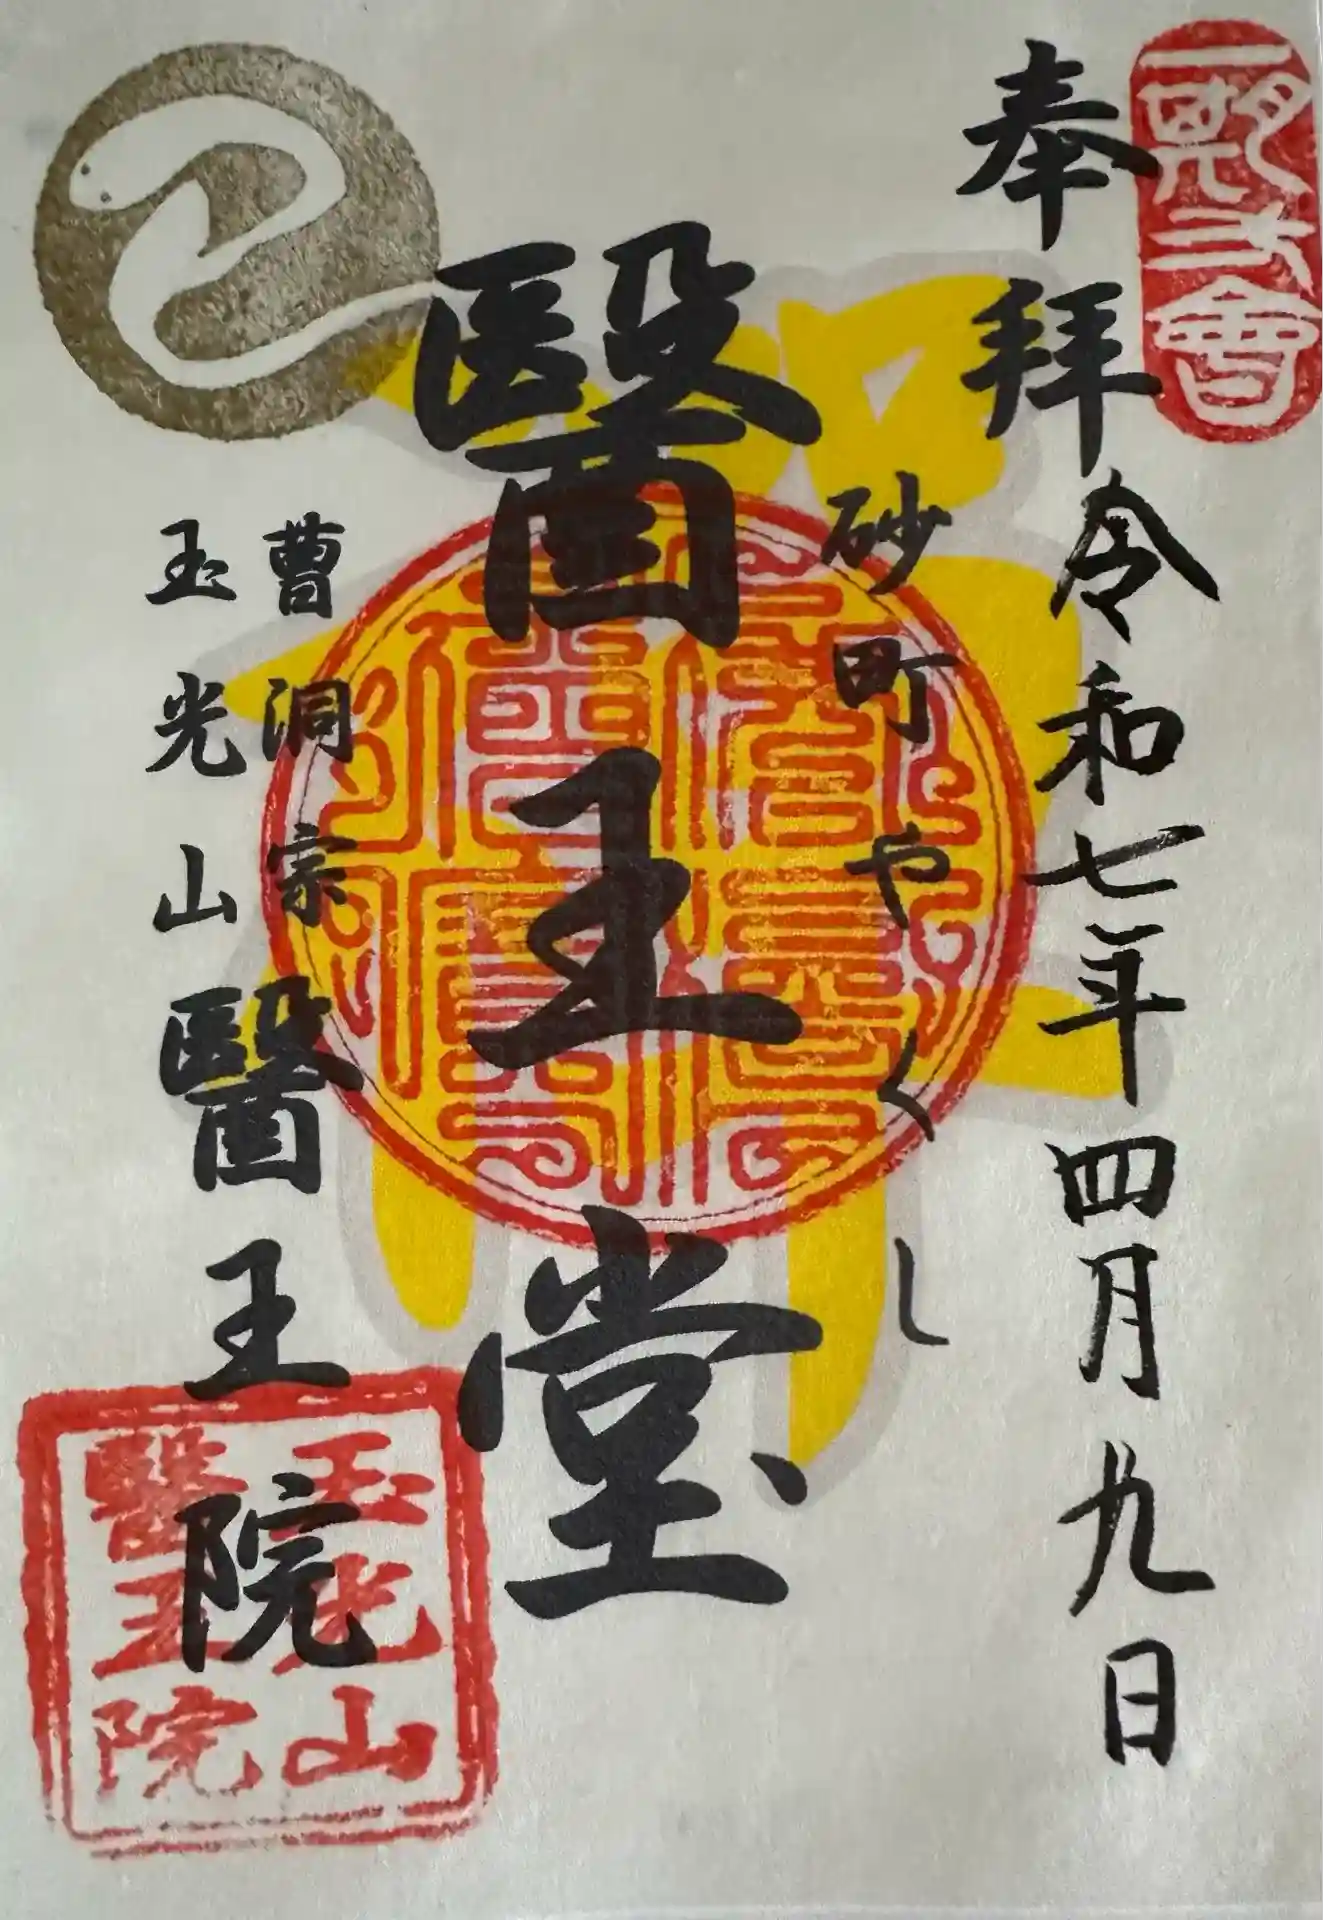 一期一會
奉拜
令和七年四月九日
砂町やくし
醫王堂
曹洞宗
玉光山醫王院
玉光山
醫王院